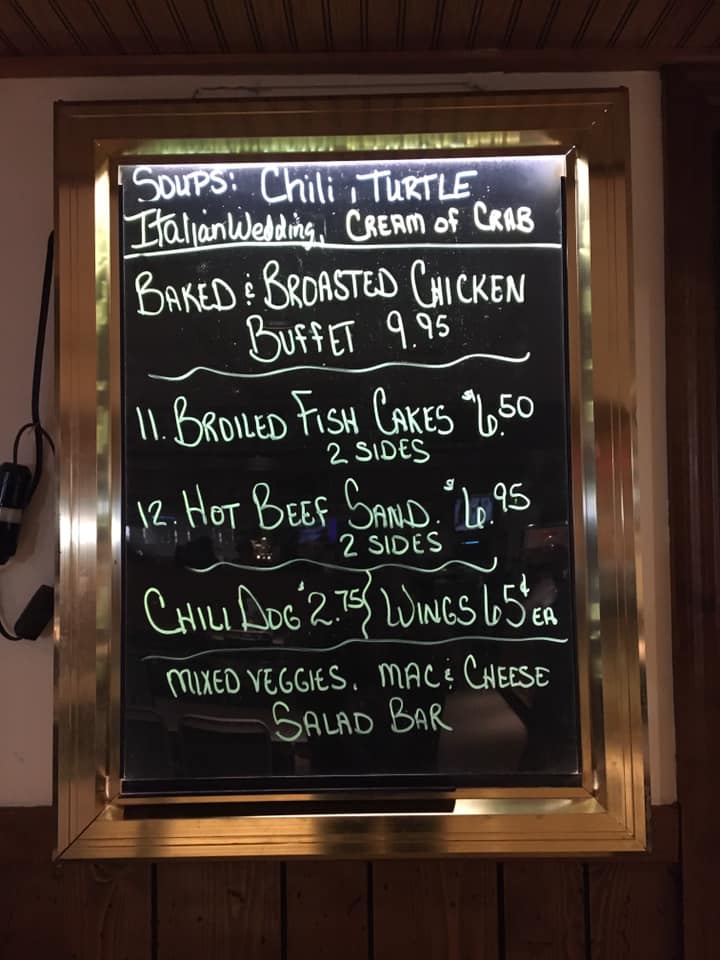 SOUPS: Chili, TURTLE
Italian Wedding, CREAM of CRAB
BAKED & BROASTED CHICKEN
BUFFET 9.95
11. BROILED FISH CAKES $6.50
2 SIDES
12. HOT BEEF SAND. $6.95
2 SIDES
CHILI DOG $2.75 } WINGS 65¢ EA
MIXED VEGGIES. MAC & CHEESE
SALAD BAR